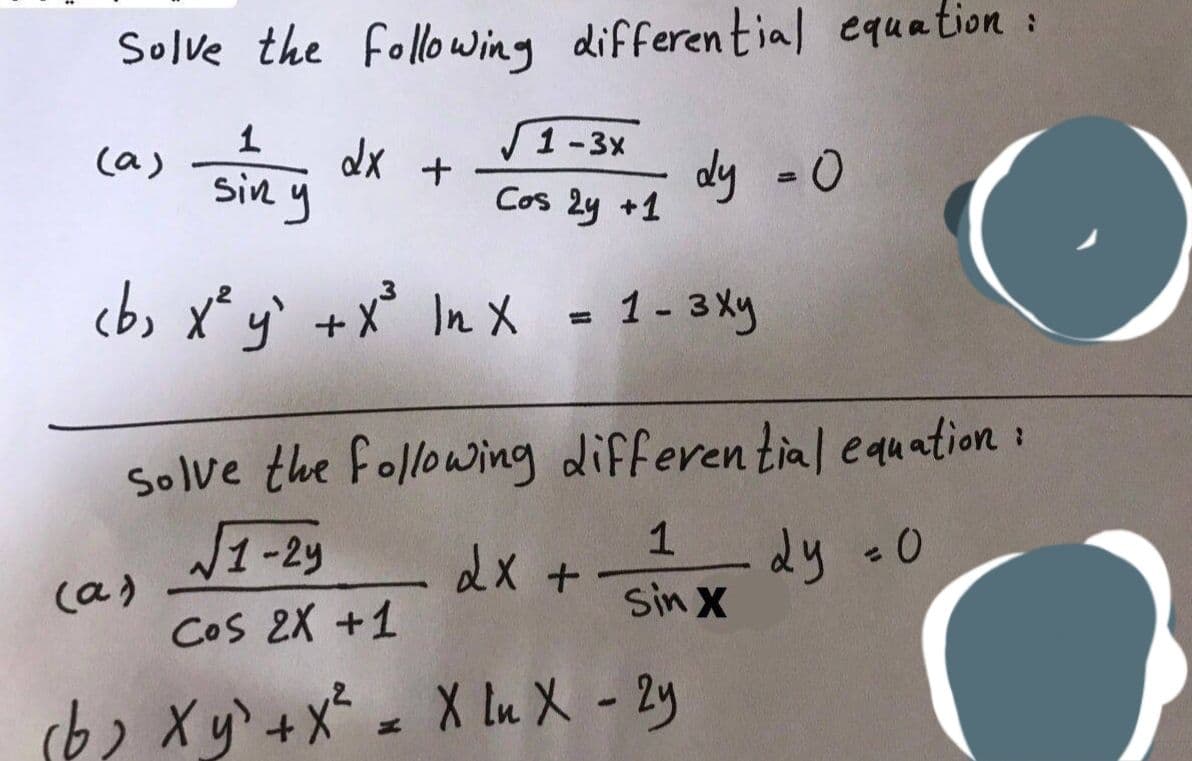 Solve the following differential equation :
(a) 1/sin y dx + √(1-3x)/(cos 2y +1) dy = 0
(b) x² y` + x³ ln x = 1 - 3xy
Solve the following differential equation :
(a) √(1-2y)/(cos 2x +1) dx + 1/sin x dy = 0
(b) x y` + x² = x ln x - 2y